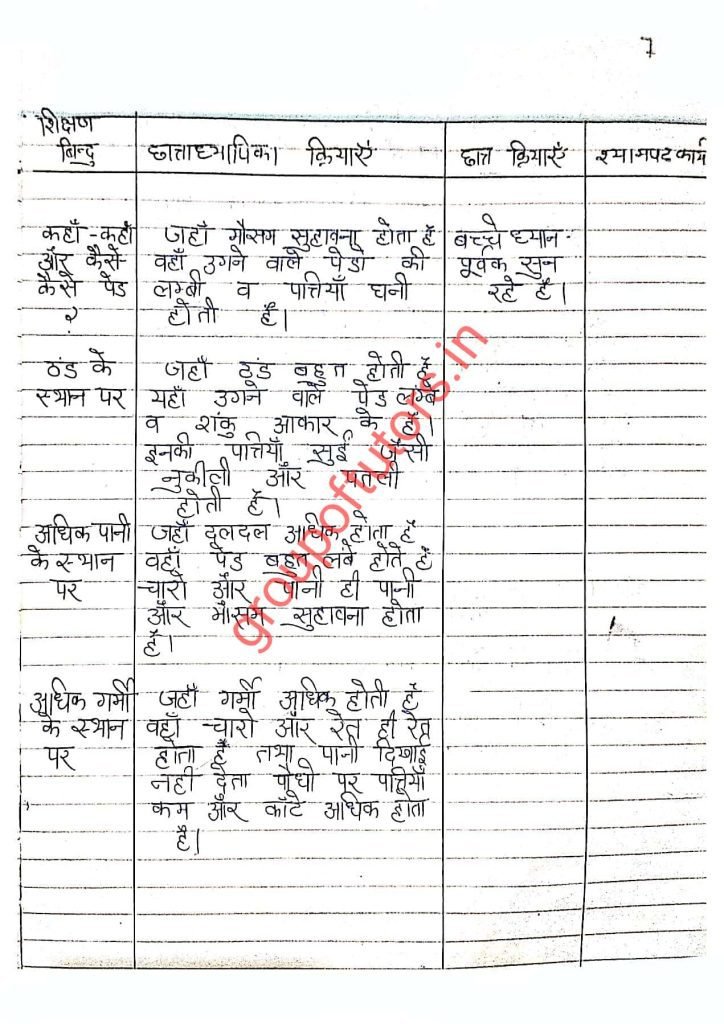 7
शिक्षण
बिन्दु
छात्ताध्यापिका क्रियाएँ
छात्त क्रियाएँ
श्यामपट कार्य
कहाँ-कहाँ
और कैसे
कैसे पेड
?
जहाँ मौसम सुहावना होता है
वहाँ उगने वाले पेडो की
लम्बी व पत्तियाँ घनी
होती है।
बच्चे ध्यान-
पूर्वक सुन
रहे है।
ठंड के
स्थान पर
जहाँ ठंड बहुत होती है
यहाँ उगने वाले पेड लम्बे
व शंकु आकार के है।
इनकी पत्तियाँ सुई जैसी
नुकीली और पतली
होती है।
अधिक पानी
के स्थान
पर
जहाँ दलदल अधिक होता है
वहाँ पेड बहुत लंबे होते है
चारो और पानी ही पानी
और मौसम सुहावना होता
है।
अधिक गर्मी
के स्थान
पर
जहाँ गर्मी अधिक होती है
वहाँ चारो और रेत ही रेत
होता है तथा पानी दिखाई
नही देता पौधो पर पत्तियाँ
कम और काँटे अधिक होता
है।
groupoftutors.in